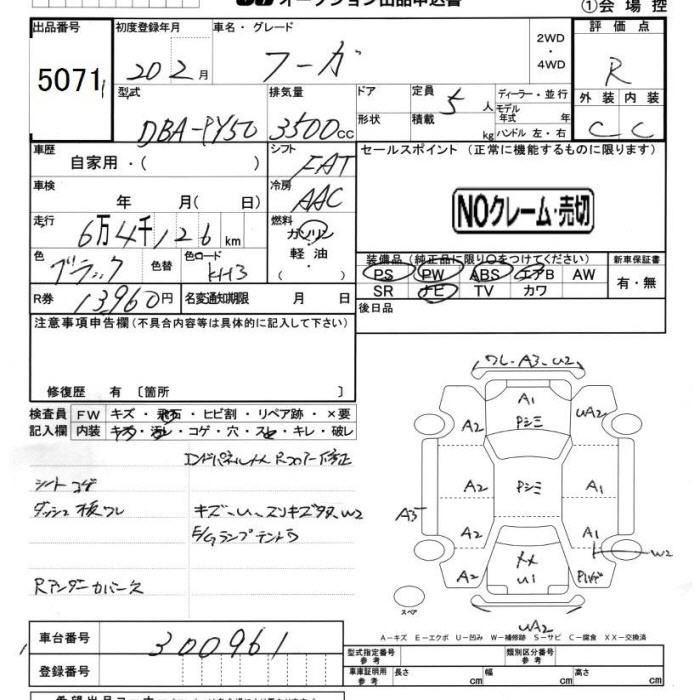 オークション出品申込書
①会場控
出品番号 初度登録年月 車名・グレード 2WD・4WD 評価点
5071 20 2月 フーガ R
型式 排気量 ドア 定員 5人 ディーラー・並行 外装 内装
DBA-PY50 3500cc 形状 積載 kg モデル年式 年 ハンドル 左・右 C C
車歴 シフト セールスポイント(正常に機能するものに限ります)
自家用・( ) FAT
車検 冷房
年 月( 日) AAC NOクレーム・売切
走行 燃料
6万4千126km ガソリン
軽油
・( )
色 色替 色コード 装備品(純正品に限り○をつけてください) 新車保証書
ブラック KH3 PS PW ABS エアB AW 有・無
SR ナビ TV カワ
R券 13960円 名変通知期限 月 日 後日品
注意事項申告欄(不具合内容等は具体的に記入して下さい)
修復歴 有〔箇所 〕
検査員 FW キズ・飛石・ヒビ割・リペア跡・×要
記入欄 内装 キズ・汚レ・コゲ・穴・スレ・キレ・破レ
シートコゲ
ダッシュ板ワレ
キズ・U・スリキズ多数 W2
Rアンダーカバー欠
ワレ・A3・U2
A1
Pシミ
A2
UA2
A2
Pシミ
A1
A35
A2
A1
W2
A2
U1
UA2
スペア
A-キズ E-エクボ U-凹み W-補修跡 S-サビ C-腐食 XX-交換済
車台番号 300961
登録番号
型式指定番号 参考 類別区分番号 参考
車庫証明用 参考 長さ cm 幅 cm 高さ cm
希望出品コーナー